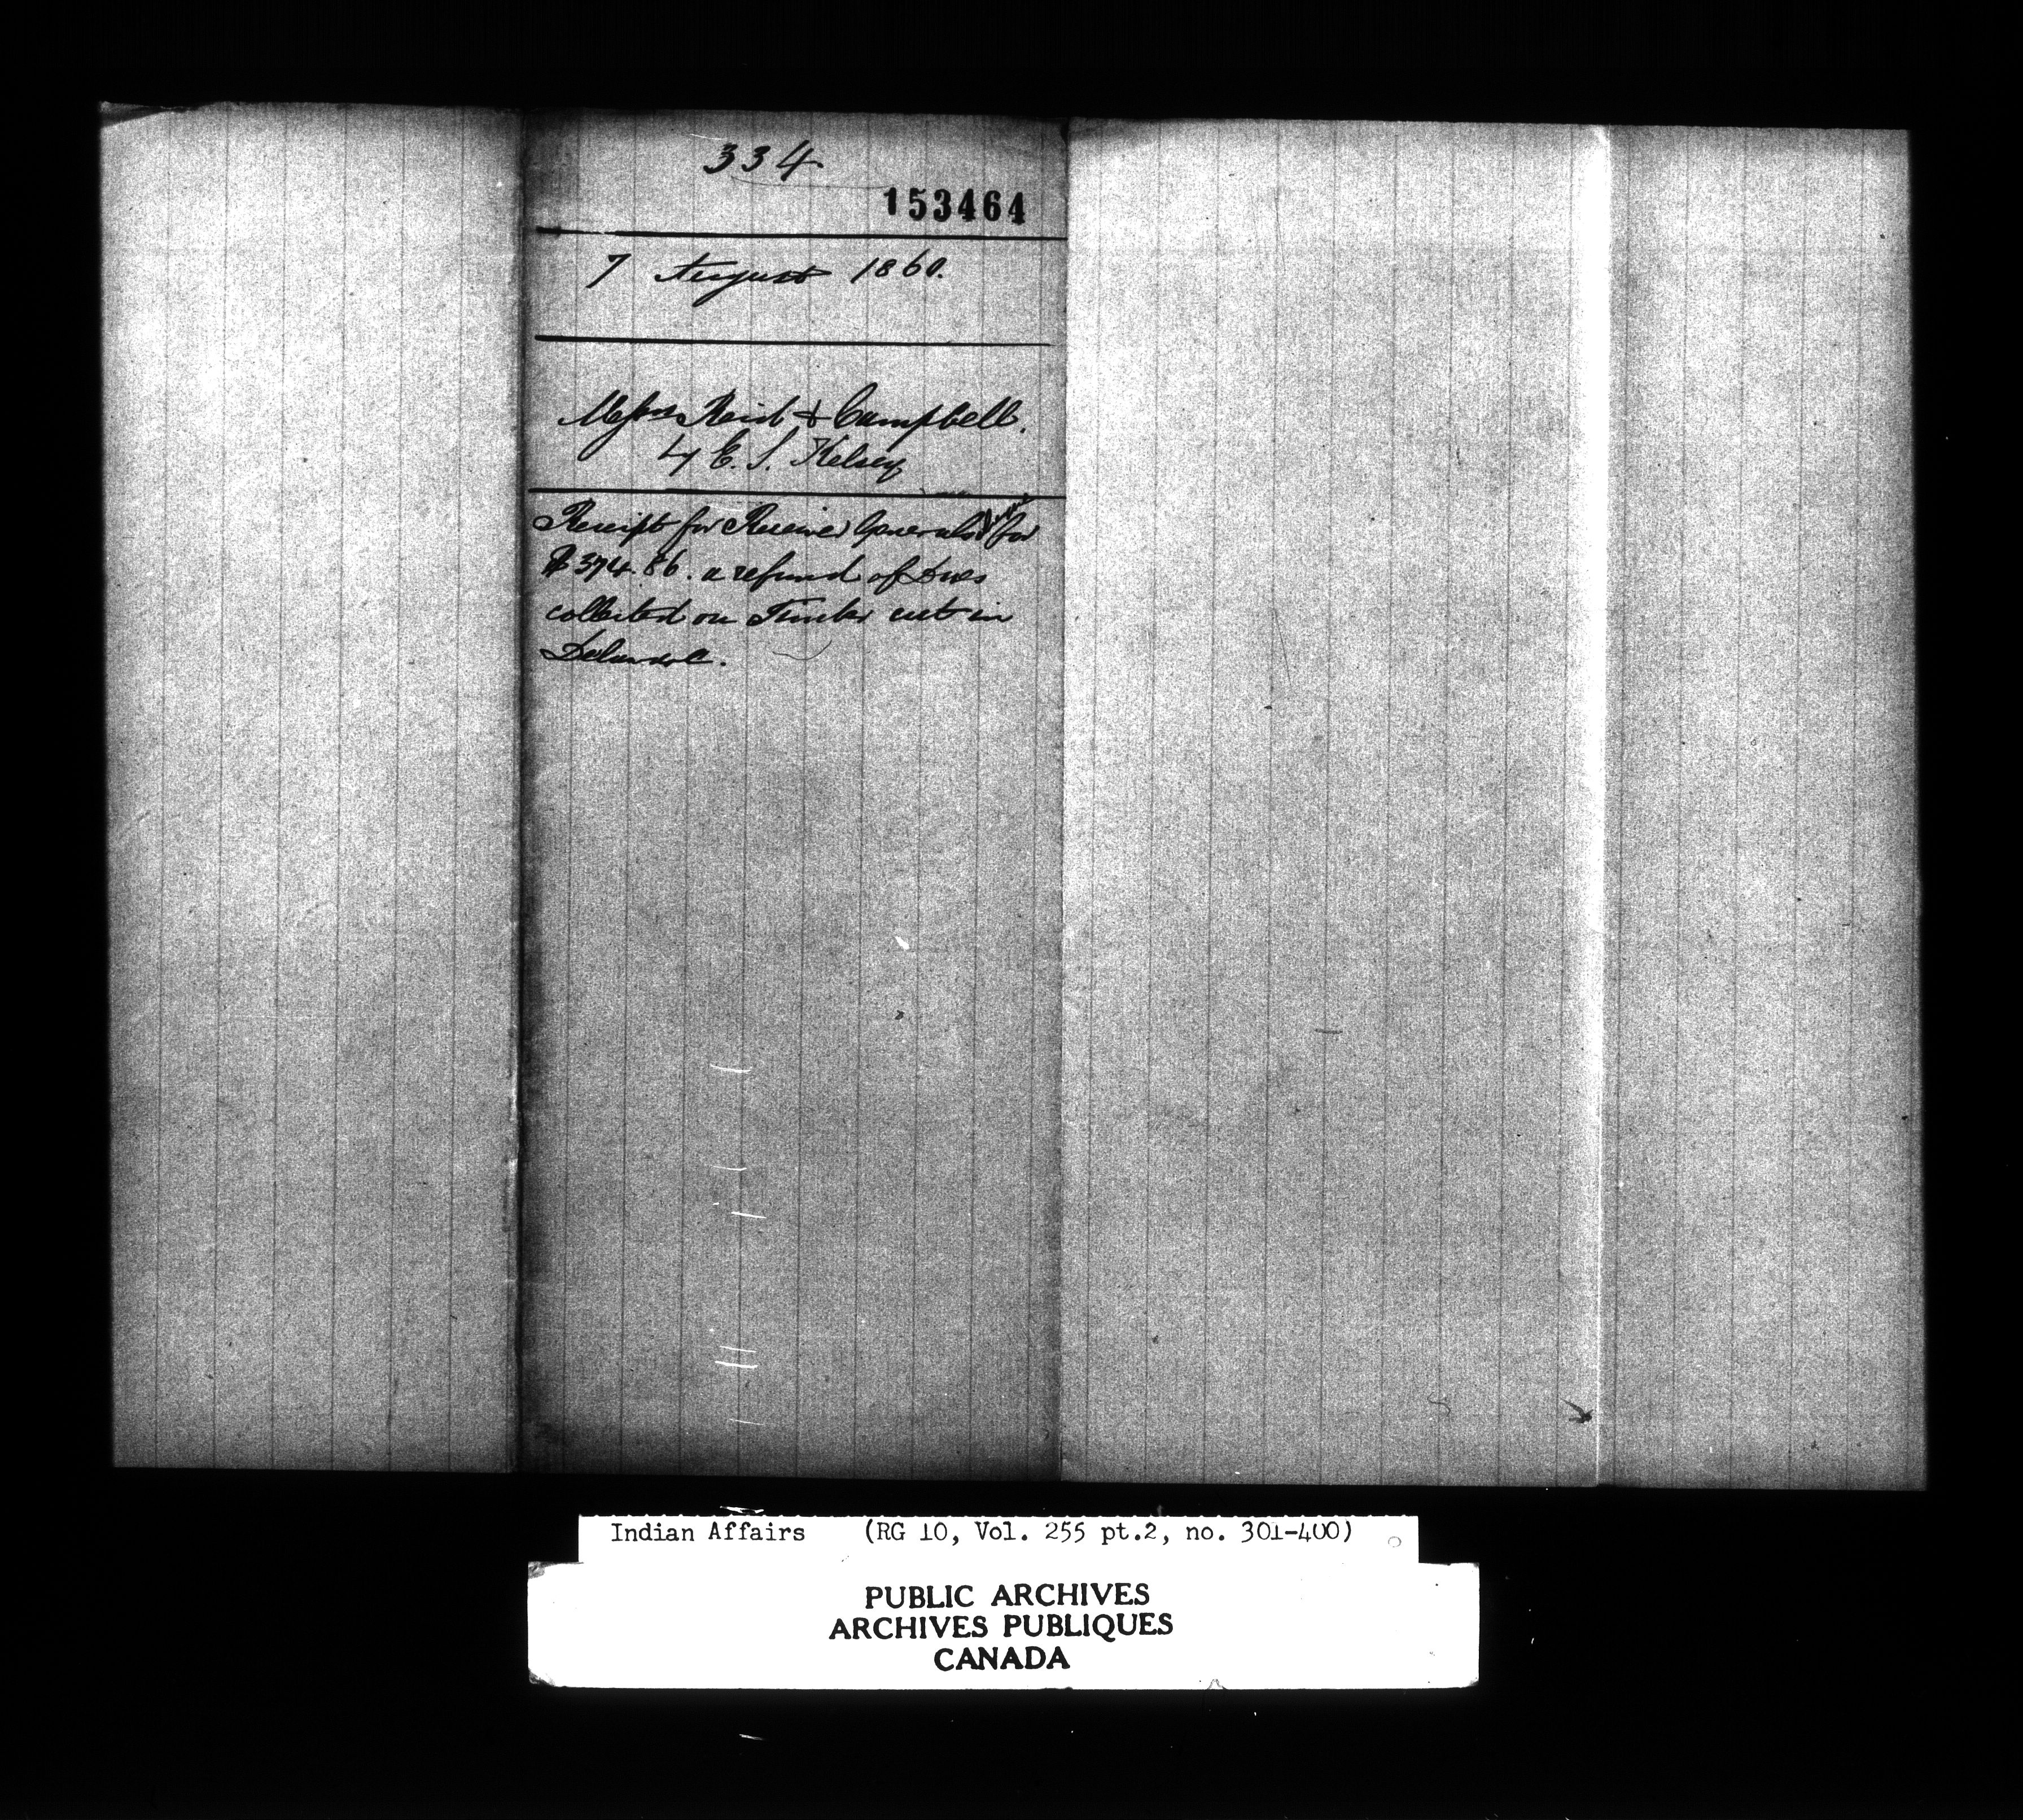 334
153464
7 August 1860.
Messrs Reid & Campbell.
by E. S. Kelsey
Receipt for Receiver Generals for
$374.86. a refund of Dues
collected on Timber cut in
Delaware.
Indian Affairs (RG 10, Vol. 255 pt.2, no. 301-400)
PUBLIC ARCHIVES
ARCHIVES PUBLIQUES
CANADA